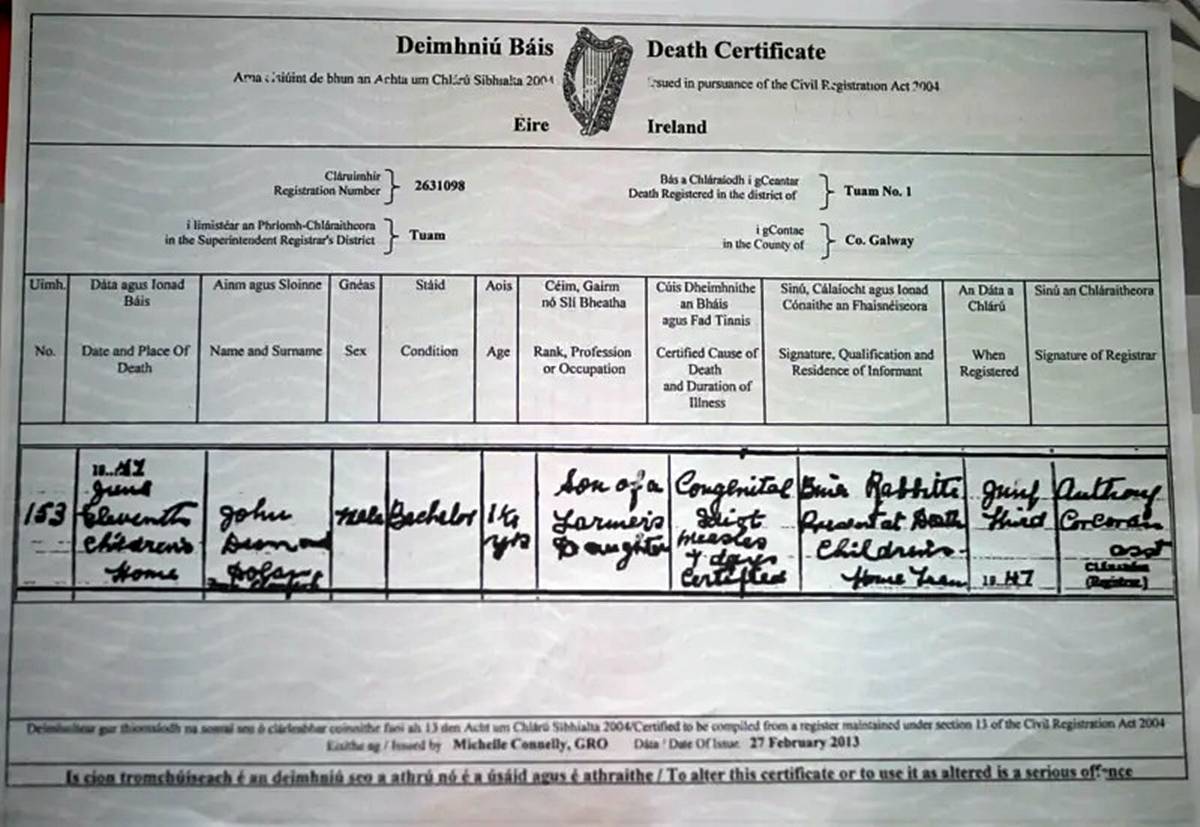 Deimhniú Báis
Death Certificate
de bhun an Achta um Chlárú Sibhialta 2004
issued in pursuance of the Civil Registration Act 2004
Éire
Ireland
Cláruimhir
Registration Number
2631098
Bás a Chláraíodh i gCeantar
Death Registered in the district of
Tuam No. 1
i limistéar an Phríomh-Chláraitheora
in the Superintendent Registrar's District
Tuam
i gContae
in the County of
Co. Galway
Uimh.
No.
Dáta agus Ionad
Báis
Date and Place Of
Death
Ainm agus Sloinne
Name and Surname
Gnéas
Sex
Stáid
Condition
Aois
Age
Céim, Gairm
nó Slí Bheatha
Rank, Profession
or Occupation
Cúis Dheimhnithe
an Bháis
agus Fad Tinnis
Certified Cause of
Death
and Duration of
Illness
Sinú, Cálaíocht agus Ionad
Cónaithe an Fhaisnéiseora
Signature, Qualification and
Residence of Informant
An Dáta a
Chlárú
When
Registered
Sinú an Chláraitheora
Signature of Registrar
153
19 47
June
Eleventh
Children's
Home
John
Desmond
Male
Bachelor
yrs
Son of a
Farmer's
Daughter
Congenital
Idiot
Measles
7 days
Certified
Rabbitte
Present at Death
Children's
Home Tuam
19 47
Anthony
Corcoran
asst
Cláraitheoir
(Registrar)
13 den Acht um Chlárú Sibhialta 2004/Certified to be compiled from a register maintained under section 13 of the Civil Registration Act 2004
Eisithe ag / Issued by Michelle Connelly, GRO Dáta / Date Of Issue 27 February 2013
Is cion tromchúiseach é an deimhniú seo a athrú nó é a úsáid agus é athraithe / To alter this certificate or to use it as altered is a serious offence